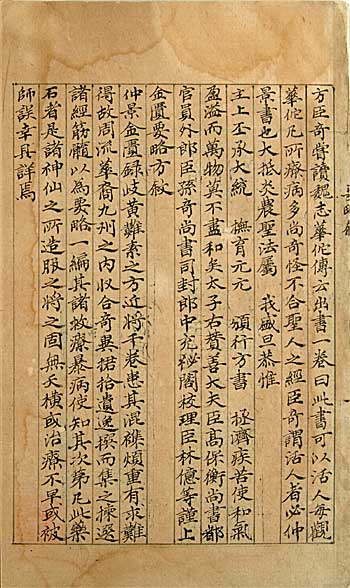 方臣奇嘗讀魏志華佗傳云出書一卷曰此書可以活人每觀
華佗凡所療病多尚奇怪不合聖人之經臣奇謂活人者必仲
景書也大抵炎農聖法屬　我盛旦恭惟
主上丕承大統　撫育元元　頒行方書　拯濟疾苦使和氣
盈溢而萬物莫不盡和矣太子右贊善大夫臣高保衡尚書都
官員外郎臣孫奇尚書司封郎中充祕閣校理臣林億等謹上
金匱要略方敘
仲景金匱録岐黃難素之方近將千卷患其混雜煩重有求難
得故周流華裔九州之内收合奇異捃拾遺逸撰而集之揀選
諸經筋髓以為要略一編其諸救療暴病使知其次第凡此藥
石者是諸神仙之所造服之將之固無夭橫或治療不早或被
師誤幸具詳焉